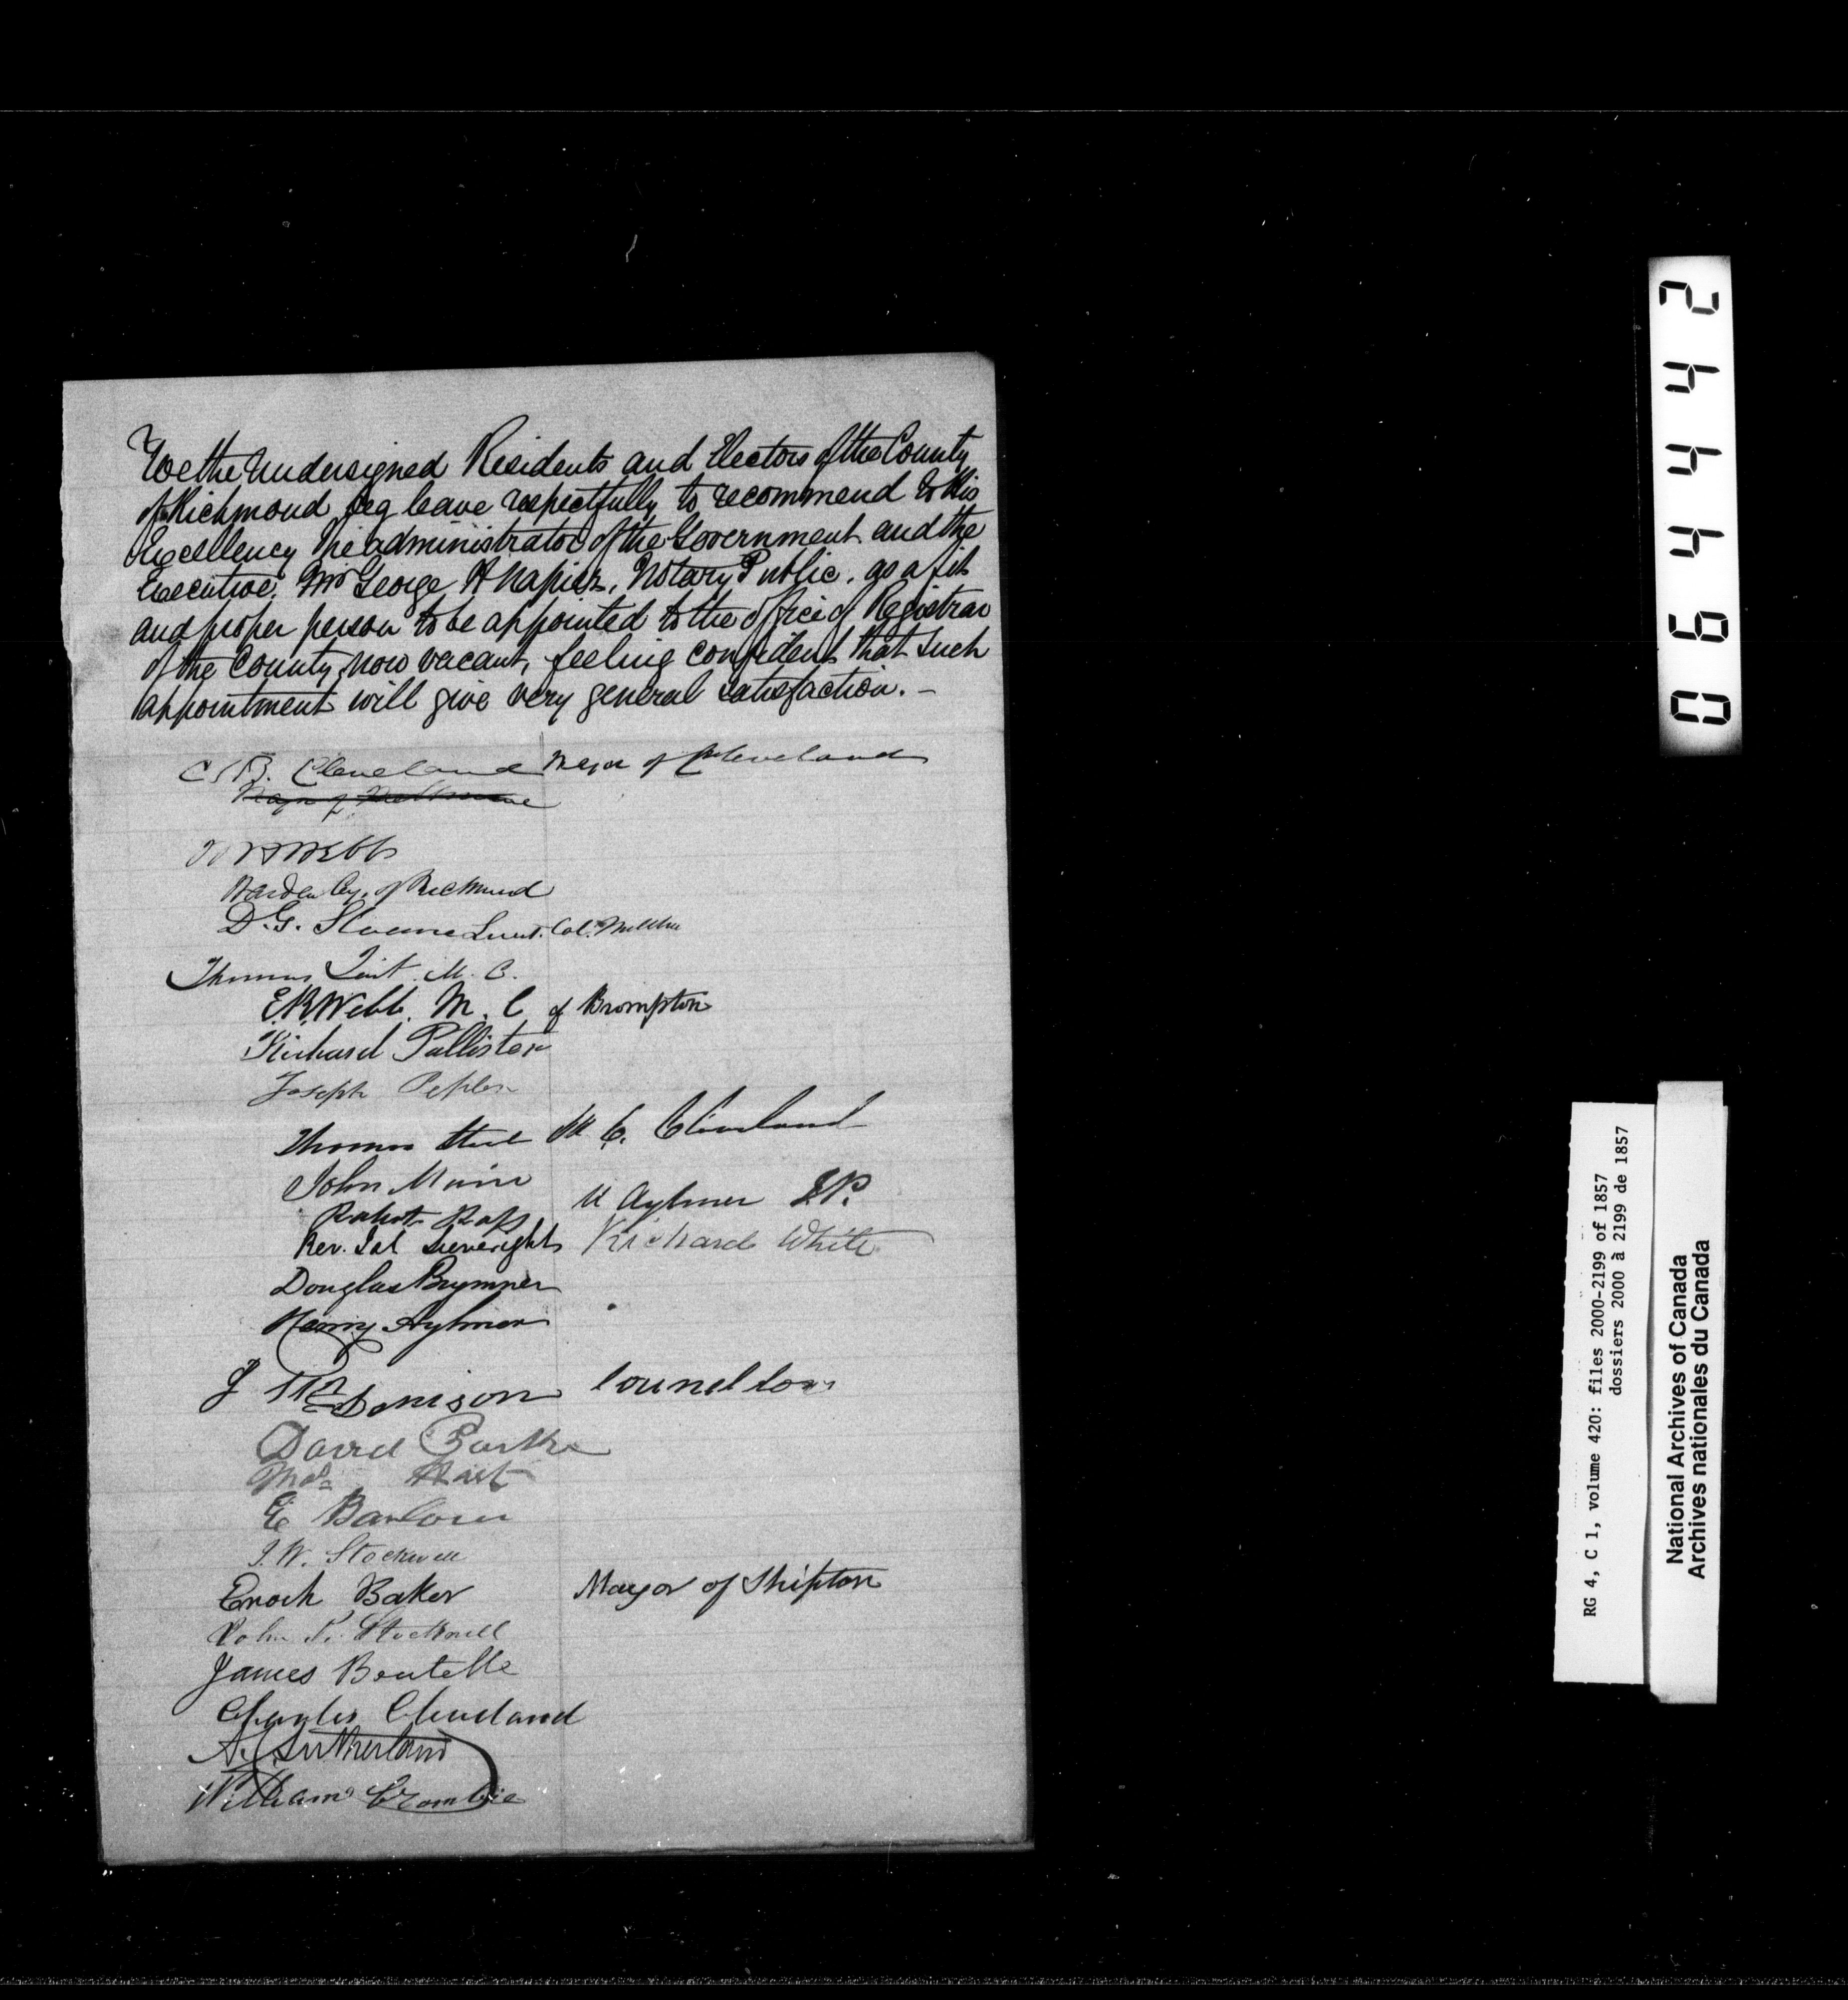 We the Undersigned Residents and Electors of the County
of Richmond beg leave respectfully to recommend to His
Excellency the administrator of the Government and the
Executive, Mr George H Napier, Notary Public, as a fit
and proper person to be appointed to the office of Registrar
of the County now vacant, feeling confident that such
appointment will give very general satisfaction. -
C. B. Cleveland Mayor of Cleveland
Mayor of Melbourne
Webb
Warden Cy. of Richmond
D. G. Sloane Lieut. Col. Militia
Thomas Tait. M. C.
E. R. Webb. M. C of Brompton
Richard Palliston
Joseph
Thomas Steel M. C. Cleveland
John Muir
H Aylmer J.P.
Robert Ross
Rev. Sieveright Richard White
Douglas Brymner
Henry Aylmer
J Denison Councillor
David
Hart
E Barlow
J. W. Stockwell
Enoch Baker Mayor of Shipton
John Stockwell
James Boutelle
Charles Cleveland
A. Sutherland
William Crombie
064442
RG 4, C 1, volume 420: files 2000-2199 of 1857
dossiers 2000 à 2199 de 1857
National Archives of Canada
Archives nationales du Canada